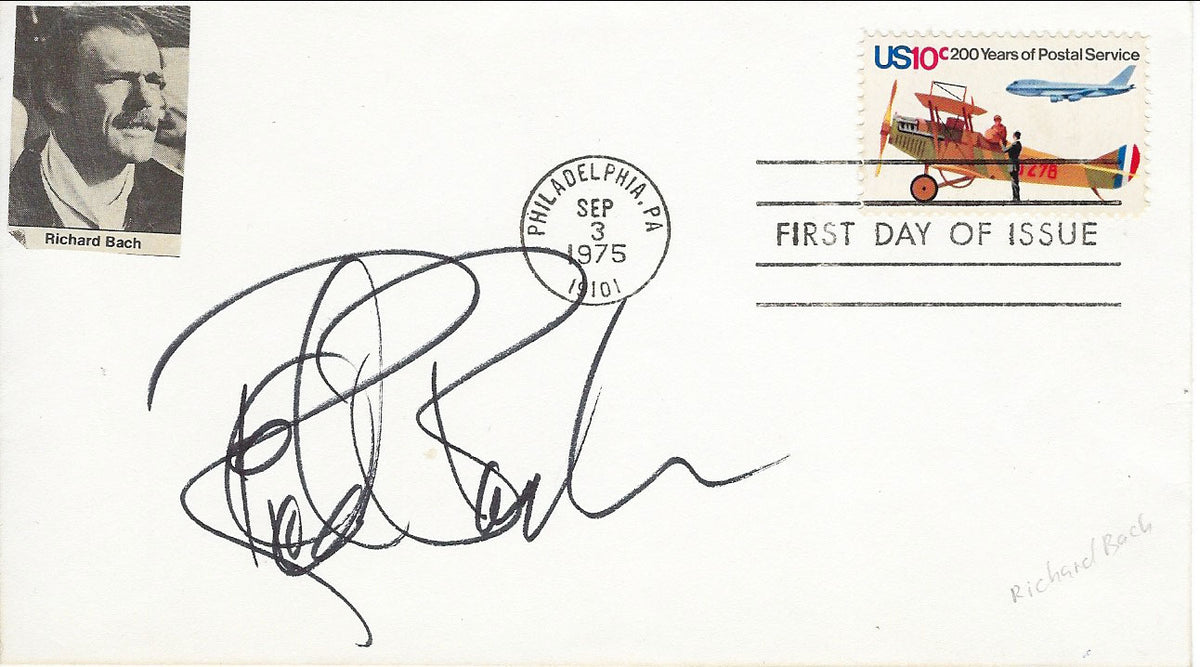 Richard Bach
US10c 200 Years of Postal Service
278
PHILADELPHIA, PA
SEP
3
1975
19101
FIRST DAY OF ISSUE
Richard Bach
Richard Bach